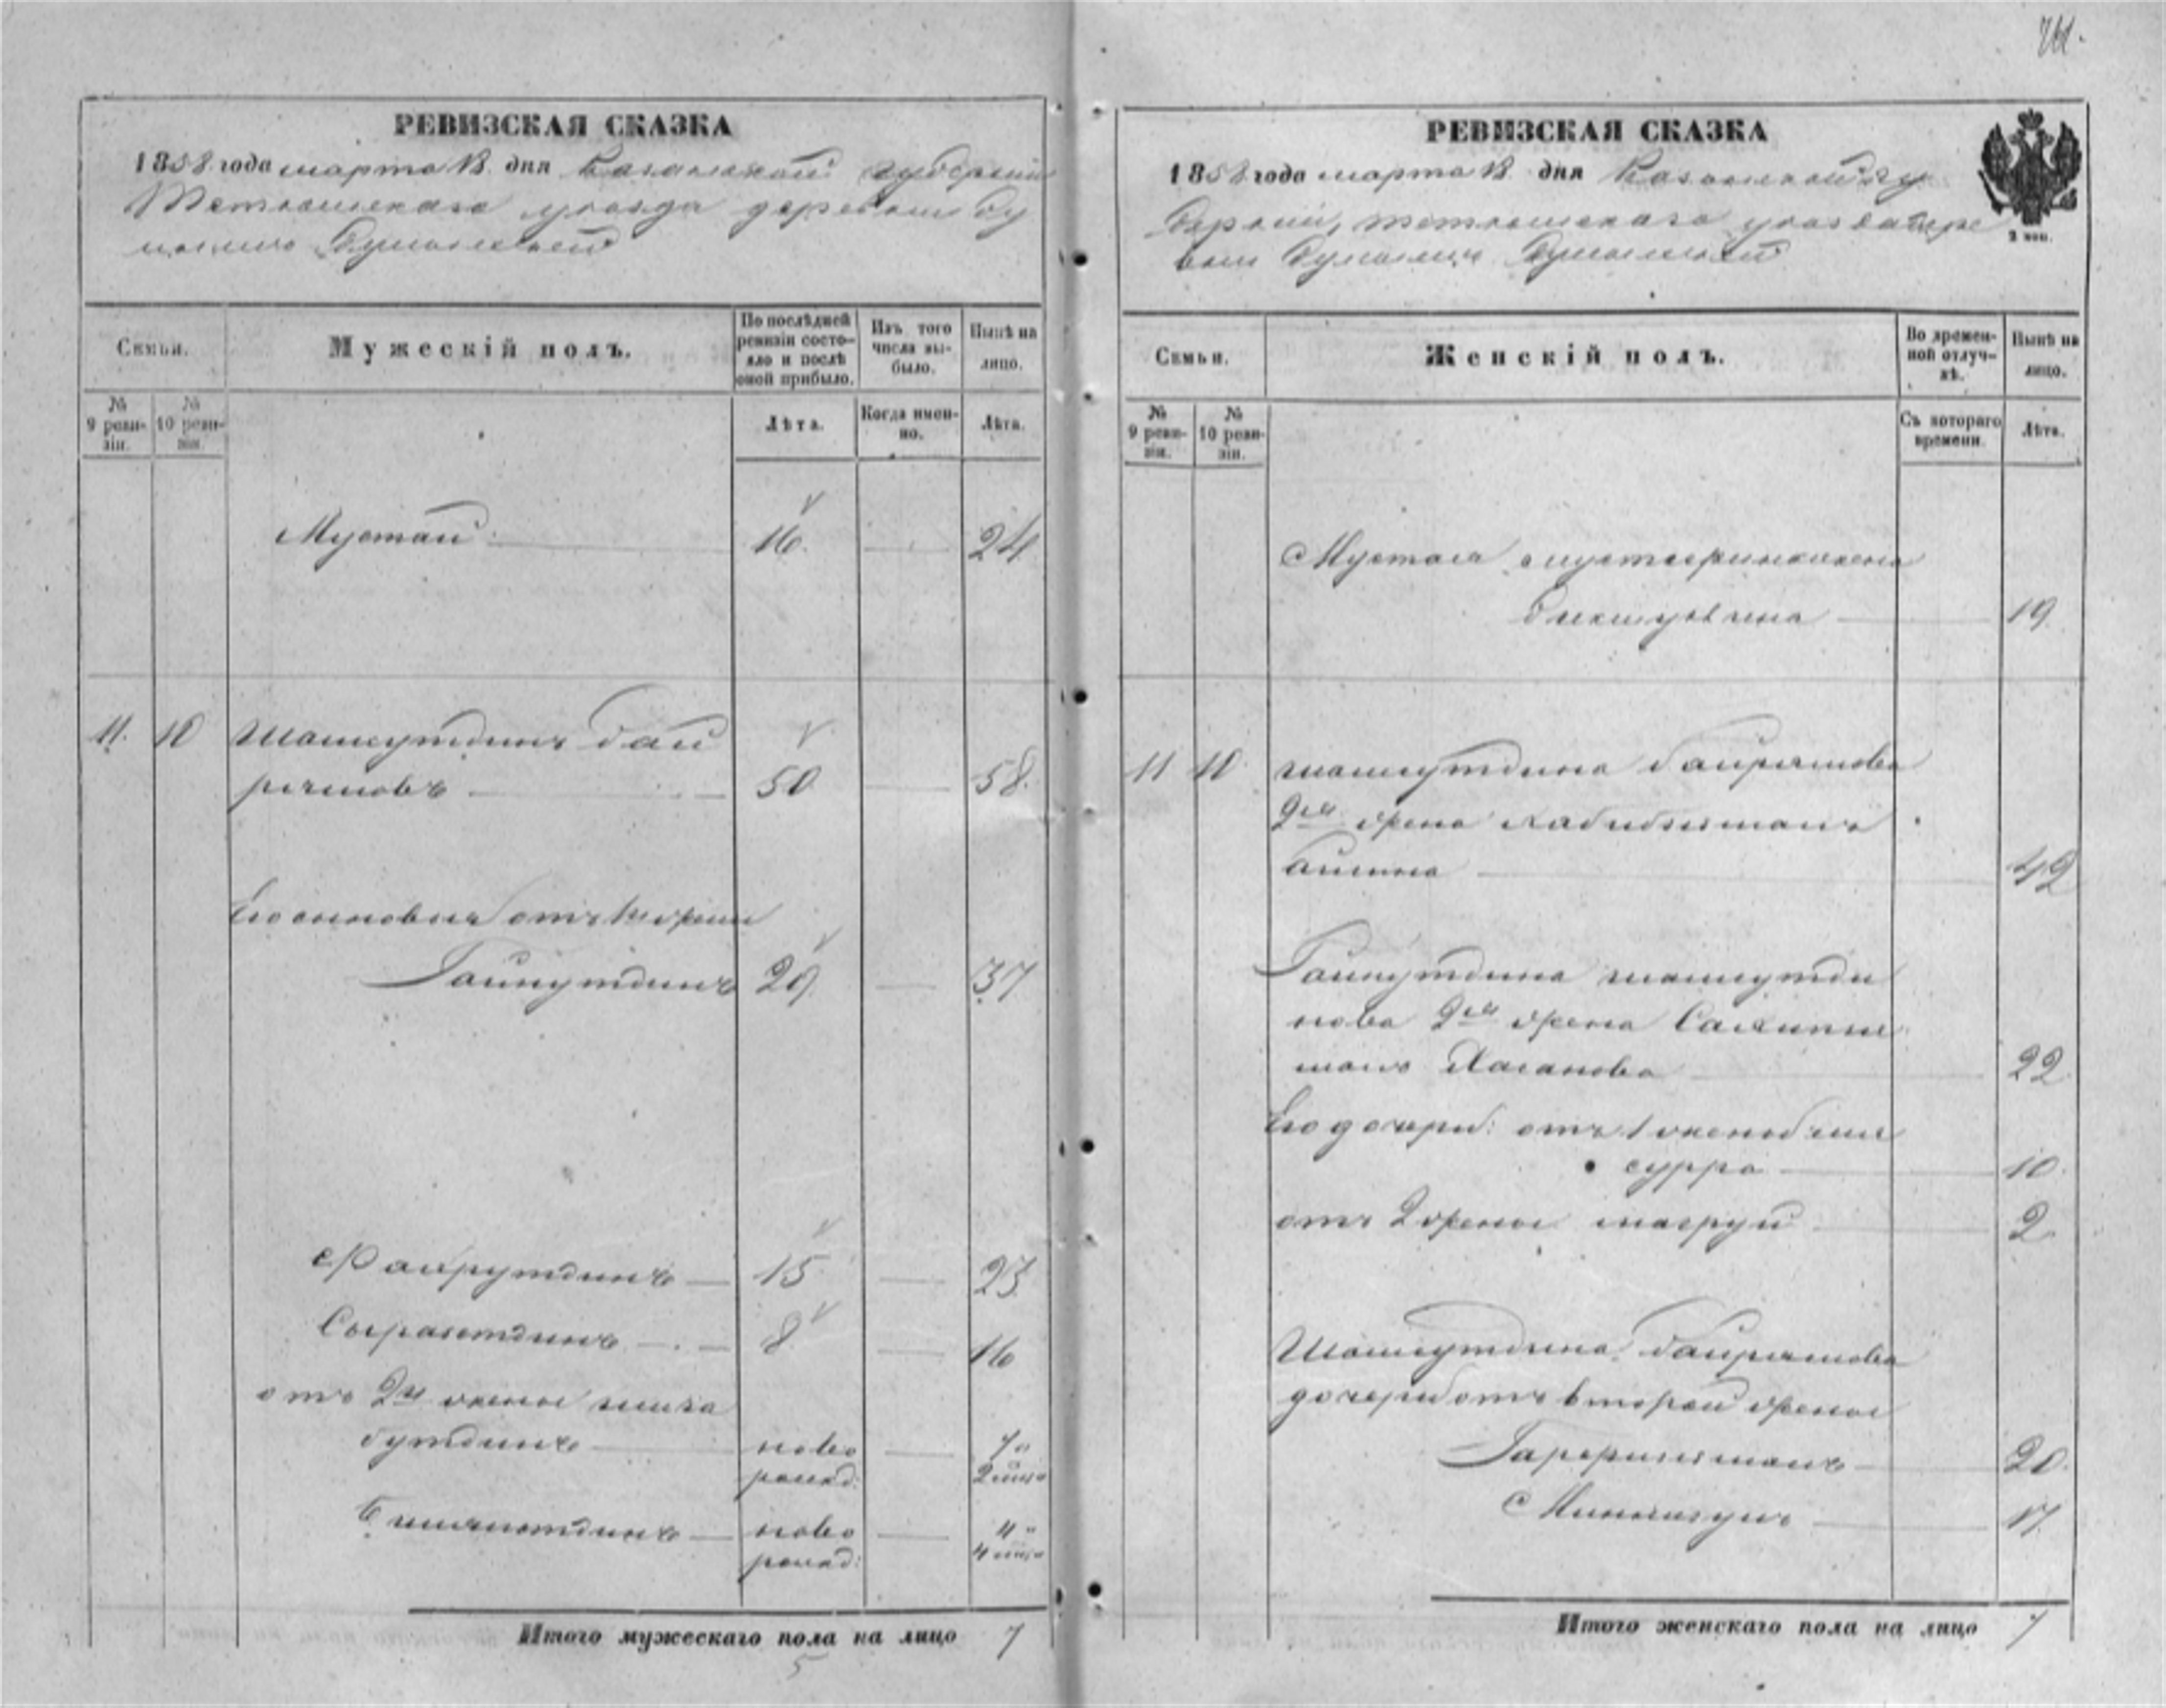 РЕВИЗСКАЯ СКАЗКА
1858 года марта 18 дня Казанской губернии
Тетюшскаго уезда деревни
Мужескій полъ.
Семьи.
По послѣдней ревизіи состояло и послѣ оной прибыло.
Изъ того числа выбыло.
Нынѣ на лицо.
№ 9 ревизіи.
№ 10 ревизіи.
Лѣта.
Когда именно.
Лѣта.
Мустай 16. 24
11. 10 Шамсутдинъ Бай
рямовъ 50 58.
Его сыновья отъ 1й жены
Гайнутдинъ 29 37
Фахрутдинъ 15 23
Сыразетдинъ 8 16
отъ 2й жены шига
бутдинъ ново 7
рожд:
ново 4
рожд:
Итого мужескаго пола на лицо 7
5
РЕВИЗСКАЯ СКАЗКА
1858 года марта 18 дня Казанской гу
берніи, тетюшскаго уезда дере
вни
2 коп.
Семьи.
Женскій полъ.
Во времен-
ной отлуч-
кѣ.
Нынѣ на
лицо.
№ 9 ревизіи.
№ 10 ревизіи.
Съ котораго
времени.
Лѣта.
Мустая
19
11 10 шамсутдина байрямова
2я жена Хабибзямалъ
42
Гайнутдина шамсутди
нова 2я жена
Хасанова 22
Его дочери: отъ 1
сурра 10
отъ 2 жены магруй 2
Шамсутдина Байрямова
дочери отъ второй жены
20
17
Итого женскаго пола на лицо 7